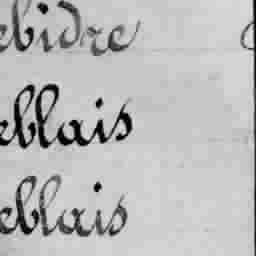 ebidre
eblais
eblais